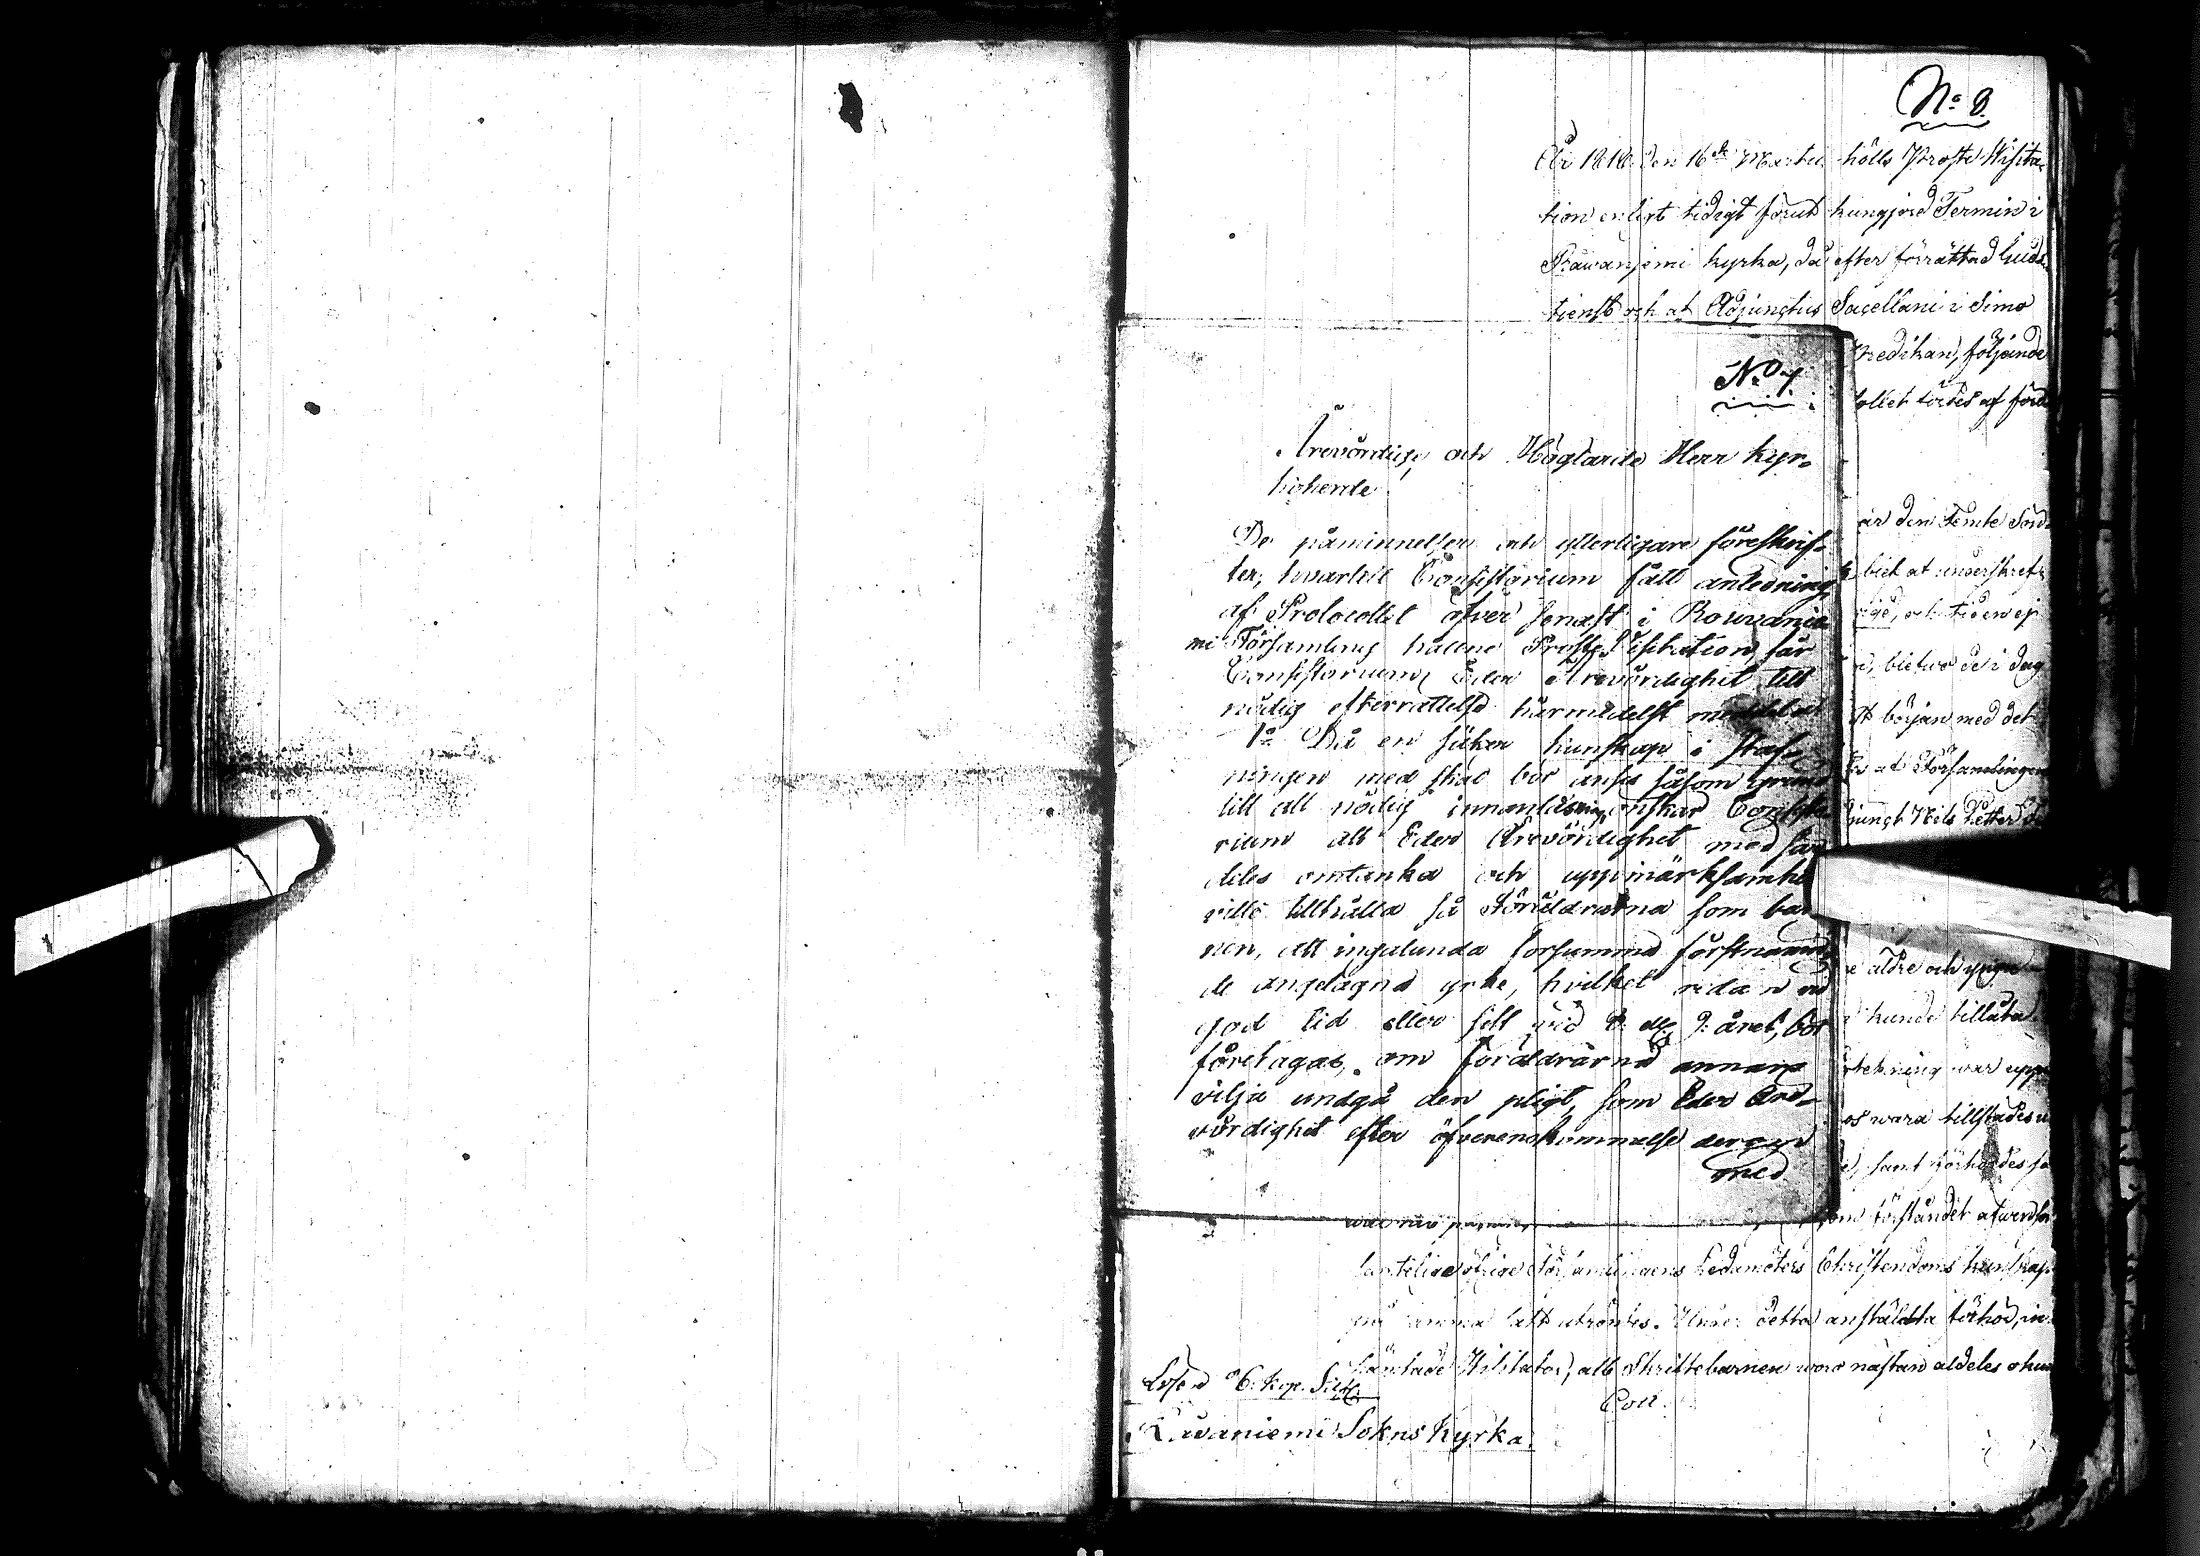 No 8.
År 1818 den 16de Martii hölls Proste Visita-
tion enligt tidigt förut kungjord Termin i
Råwaniemi kyrka, då efter förrättad Guds-
tienst och at Adjunctus Sacellani i Simo
Predikan, följande
ollet fördes af
No 7.
Ärevördige och Höglärde Herr Kyr-
koherde!
De påminnelser och ytterligare föreskrif-
ter, hvartill Consistorium fått anledning
af Protocollet öfver senast i Rouvanie
mi Församling hållne Prosts Visitation, får
Consistorium Eder Ärevördighet till
nödig efterrättelse härmedelst meddela
1o Då en säker kunskap i staf-
ningen med skäl bör anses såsom grund
till all nödig innanläsning, önskar Consisto
rium att Eder Ärevördighet med sär
deles omtanka och uppmärksamhet
ville tillhålla så Föräldrarna som bar
nen, att ingalunda försumma förstnämn
de angelägna yrke, hvilket redan vid
god tid eller sist vid 8. el. 9. året, bör
företagas, om föräldrarna annars
vilja undgå den pligt, som Eder Ära-
vördighet efter öfverenskommelse dergen
med
är den Femte
biet at underskrefs
och tiden ej
i dag
börjän med det
at Församlingen
jungt Nils Petter
äldre och yngre
kunde tillåta
tekning war upp
os wara tillstädes
samt förhördes
förståndet af
samtelige öfrige Församlingens Ledamöters Christendoms kunskap
på samma sätt utröntes. Under detta anstälda förhör, in-
hämtade Visitator, att Skriftebarnen woro nästan aldeles okun
Lösen 6. kop. Silf.
Coll.
Råwaniemi Sokns Kyrka.